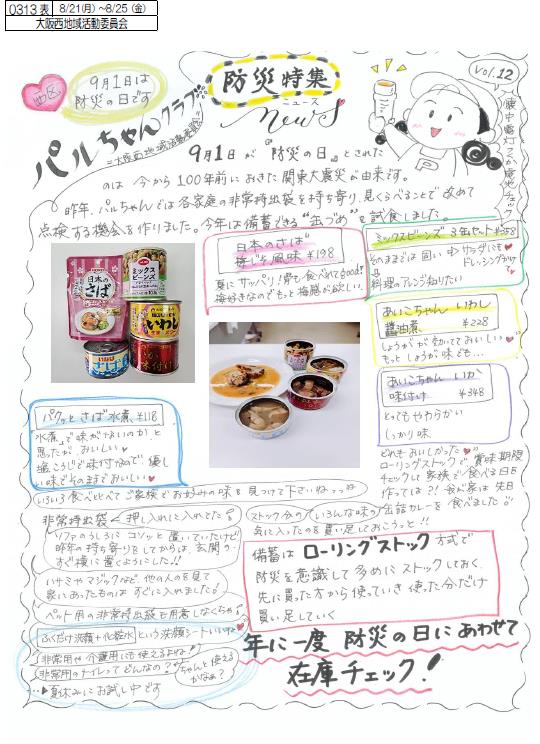 0313 表 8/21(月)~8/25(金)
大阪西地域活動委員会
西区
9月1日は
防災の日です
防災特集
ニュース
News
vol.12
懐中電灯
電池チェック
パルちゃんクラブ
9月1日が "防災の日" とされた
のは 今から 100年前におきた 関東大震災が由来です。
昨年、パルちゃんでは各家庭の非常持出袋を持ち寄り、見くらべることで改めて
点検する機会を作りました。今年は備蓄できる "缶づめ" を試食しました。
日本のさば
梅じそ風味 ¥198
夏にサッパリ!骨も食べれてgood!
梅好きなのでもっと梅感が欲しい。
ミックスビーンズ 3缶セット ¥358
そのままでは固い
サラダにも
ドレッシングかけ
料理のアレンジ知りたい
あいこちゃん いわし
醤油煮 ¥228
しょうがが効いてておいしい
もっとしょうが味でも...
あいこちゃん いか
味付け ¥348
とってもやわらかい
しっかり味
日本の
さば
ミックス
ビーンズ
いわし
味付
パクッと さば水煮 ¥118
水煮って味がないのか!と
思ったが、おいしい
塩こうじで味付なので 優し
い味でそのままでおいしい
どれもおいしかった
ローリングストックで 賞味期限
チェックし家族で食べる日を
作っては?! 我が家は先日
缶詰カレーを食べました
いろいろ食べ比べて ご家族でお好みの味を見つけて下さいね
非常持出袋
押し入れに入れてた!
ソファのうしろに コソッと置いていたけど
昨年の持ち寄りをしてからは、玄関の
すぐ横に置くようにした!!
ストック分のいろんな味の
気に入ったのを買い足しておこうっと!!
ハサミやマジックなど 他の人を見て
家にあったものはすぐに入れました!
ペット用の非常持出袋も用意しなくちゃ
ふくだけ洗顔+化粧水 という洗顔シートいいね
非常用や介護用にも使えるよね!
非常用のトイレってどんなの?
ちゃんと使える
かなぁ?
夏休みにお試し中です
備蓄は ローリングストック方式で
防災を意識して多めにストックしておく、
先に買った方から使っていき 使った分だけ
買い足していく
年に一度 防災の日にあわせて
在庫チェック!